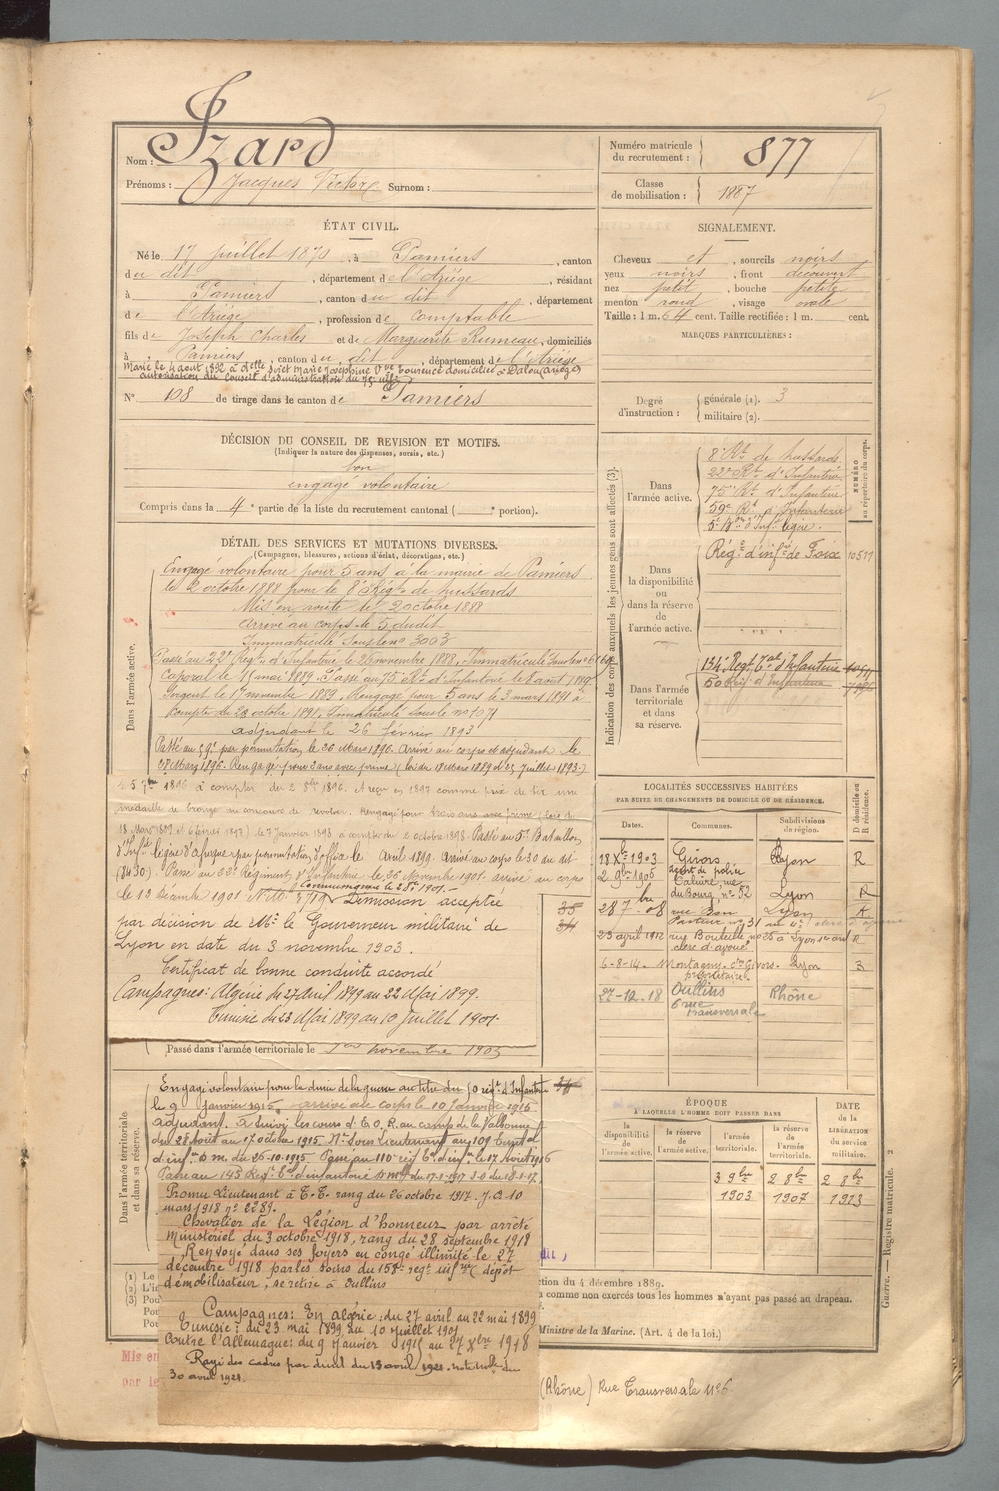 Nom : Izard
Prénoms : Jacques Victor Surnom :
Numéro matricule
du recrutement : 877
Classe
de mobilisation : 1887
ÉTAT CIVIL.
Né le 17 juillet 1870, à Pamiers, canton
du dit, département de l'Ariège, résidant
à Pamiers, canton du dit, département
de l'Ariège, profession de comptable
fils de Joseph Charles et de Marguerite Rumeau, domiciliés
à Pamiers, canton du dit, département de l'Ariège
Marié le 4 août 1892 à delle Soict Marie Joséphine Vve Laurence domiciliée à Dalou (Ariège)
autorisation du Conseil d'administration du 75e
N° 108 de tirage dans le canton de Pamiers
SIGNALEMENT.
Cheveux et, sourcils noirs
yeux noirs, front découvert
nez petit, bouche petite
menton rond, visage ovale
Taille : 1 m. 64 cent. Taille rectifiée : 1 m. cent.
MARQUES PARTICULIÈRES :
Degré
d'instruction :
générale (1). 3
militaire (2).
DÉCISION DU CONSEIL DE REVISION ET MOTIFS.
(Indiquer la nature des dispenses, sursis, etc.)
bon
engagé volontaire
Compris dans la 4e partie de la liste du recrutement cantonal ( e portion).
DÉTAIL DES SERVICES ET MUTATIONS DIVERSES.
(Campagnes, blessures, actions d'éclat, décorations, etc.)
Dans l'armée active.
Engagé volontaire pour 5 ans à la mairie de Pamiers
le 2 octobre 1888 pour le 8e Régt de hussards
Mis en route le 2 octobre 1888
Arrivé au corps le 5 dudit
Immatriculé sous le no 3003
Passé au 22e Régt d'Infanterie le 26 novembre 1888. Immatriculé sous le no
Caporal le 15 mai 1889. Passé au 75e Rt d'Infanterie le 8 août 1889
Sergent le 17 novembre 1889. Rengagé pour 5 ans le 3 mars 1891 à
compter du 28 octobre 1891, Immatriculé sous le no 1071
adjudant le 26 février 1893
Passé au 59e par permutation, le 26 Mars 1896. Arrivé au corps et adjudant le
28 Mars 1896. Rengagé pour 2 ans avec prime (loi du 18 Mars 1889 et 25 Juillet 1893)
le 5 7bre 1896 à compter du 2 8bre 1896. A reçu en 1897 comme prix de tir une
médaille de bronze au concours de revolver. Rengagé pour trois ans avec prime (lois du
18 Mars 1889 et 6 février 1897) le 7 Janvier 1898 à compter du 2 octobre 1898. Passé au 5e Bataillon
d'Inf. légère d'Afrique par permutation d'office le avril 1899. Arrivé au corps le 30 du dit
(8430). Passé au 22e Régiment d'Infanterie le 26 Novembre 1901. arrivé au corps
le 13 Décembre 1901
Démission acceptée
par décision de Mr. le Gouverneur militaire de
Lyon en date du 3 novembre 1903.
Certificat de bonne conduite accordé
Campagnes : Algérie du 27 avril 1899 au 22 Mai 1899.
Tunisie du 23 Mai 1899 au 10 Juillet 1901.
Passé dans l'armée territoriale le 1er novembre 1903
Dans l'armée territoriale
et dans sa réserve.
Engagé volontaire pour la durée de la guerre au titre du 50 régt d'Infanterie
le 9 Janvier 1915. arrivé au corps le 10 Janvier 1915
adjudant. A suivi les cours d'E.O.R. au camp de la Valbonne
du 28 août au 17 octobre 1915. Né Sous Lieutenant au 109 Territal
d'infie D.M. du 26-10-1915. Passé au 110e régt tal d'infie le 17 août 1916
Passé au 143 Régt tal d'infanterie D.M. du 17-1-1917 J.O du 18-1-17.
Promu Lieutenant à T.T. rang du 26 octobre 1917. J.O. 10
mars 1918 no 2289.
Chevalier de la Légion d'honneur par arrêté
ministériel du 3 octobre 1918, rang du 28 septembre 1918
Renvoyé dans ses foyers en congé illimité le 27
décembre 1918 par les soins du 158e régt infrie (dépôt
démobilisateur), se retire à Oullins
Campagnes : En Algérie : du 27 avril au 22 mai 1899
Tunisie : du 23 mai 1899 au 10 Juillet 1901
Contre l'Allemagne : du 9 Janvier 1915 au 27 Xbre 1918
Rayé des cadres par décret du 13 avril 1921. du
30 avril 1921.
Indication des corps auxquels les jeunes gens sont affectés (3).
NUMÉRO
au répertoire du corps.
Dans
l'armée active.
8e Rt de hussards
22e Rt d'Infanterie
75e Rt d'Infanterie
59e Rt d'Infanterie
5e Bon d'Inf. légère.
Dans
la disponibilité
ou
dans la réserve
de
l'armée active.
Régt d'infie de Foix 10511
Dans l'armée
territoriale
et dans
sa réserve.
134e Régt tal d'Infanterie
50 Régt d'Infanterie
LOCALITÉS SUCCESSIVES HABITÉES
PAR SUITE DE CHANGEMENTS DE DOMICILE OU DE RÉSIDENCE.
Dates. Communes. Subdivisions
de région. D domicile ou
R résidence.
18 Xbre 1903 Givors Lyon R
agent de police
2 9bre 1905 Caluire, rue
du Bourg, no 52 Lyon R
28 7bre 08 Lyon R
Pasteur no 31
23 avril 1912 rue Bouteille no 25 à Lyon 1er arrt R
clerc d'avoué
6-8-14. Montagny con Givors. Lyon
propriétaire.
27-12-18 Oullins Rhône
6 rue
Transversale
ÉPOQUE
À LAQUELLE L'HOMME DOIT PASSER DANS
la
disponibilité
de
l'armée active.
la
réserve de
l'armée active.
l'armée
territoriale.
la
réserve de
l'armée
territoriale.
DATE
de la
LIBÉRATION
du service
militaire.
3 9bre 2 8bre 2 8bre
1903 1907 1913
Guerre. — Registre matricule. 2
(1) Le
(2) L'in
(3) Pou
Pou
Pou
ction du 4 décembre 1889.
comme non exercés tous les hommes n'ayant pas passé au drapeau.
Ministre de la Marine. (Art. 4 de la loi.)
Mis en
par le
(Rhône) Rue Transversale no 6